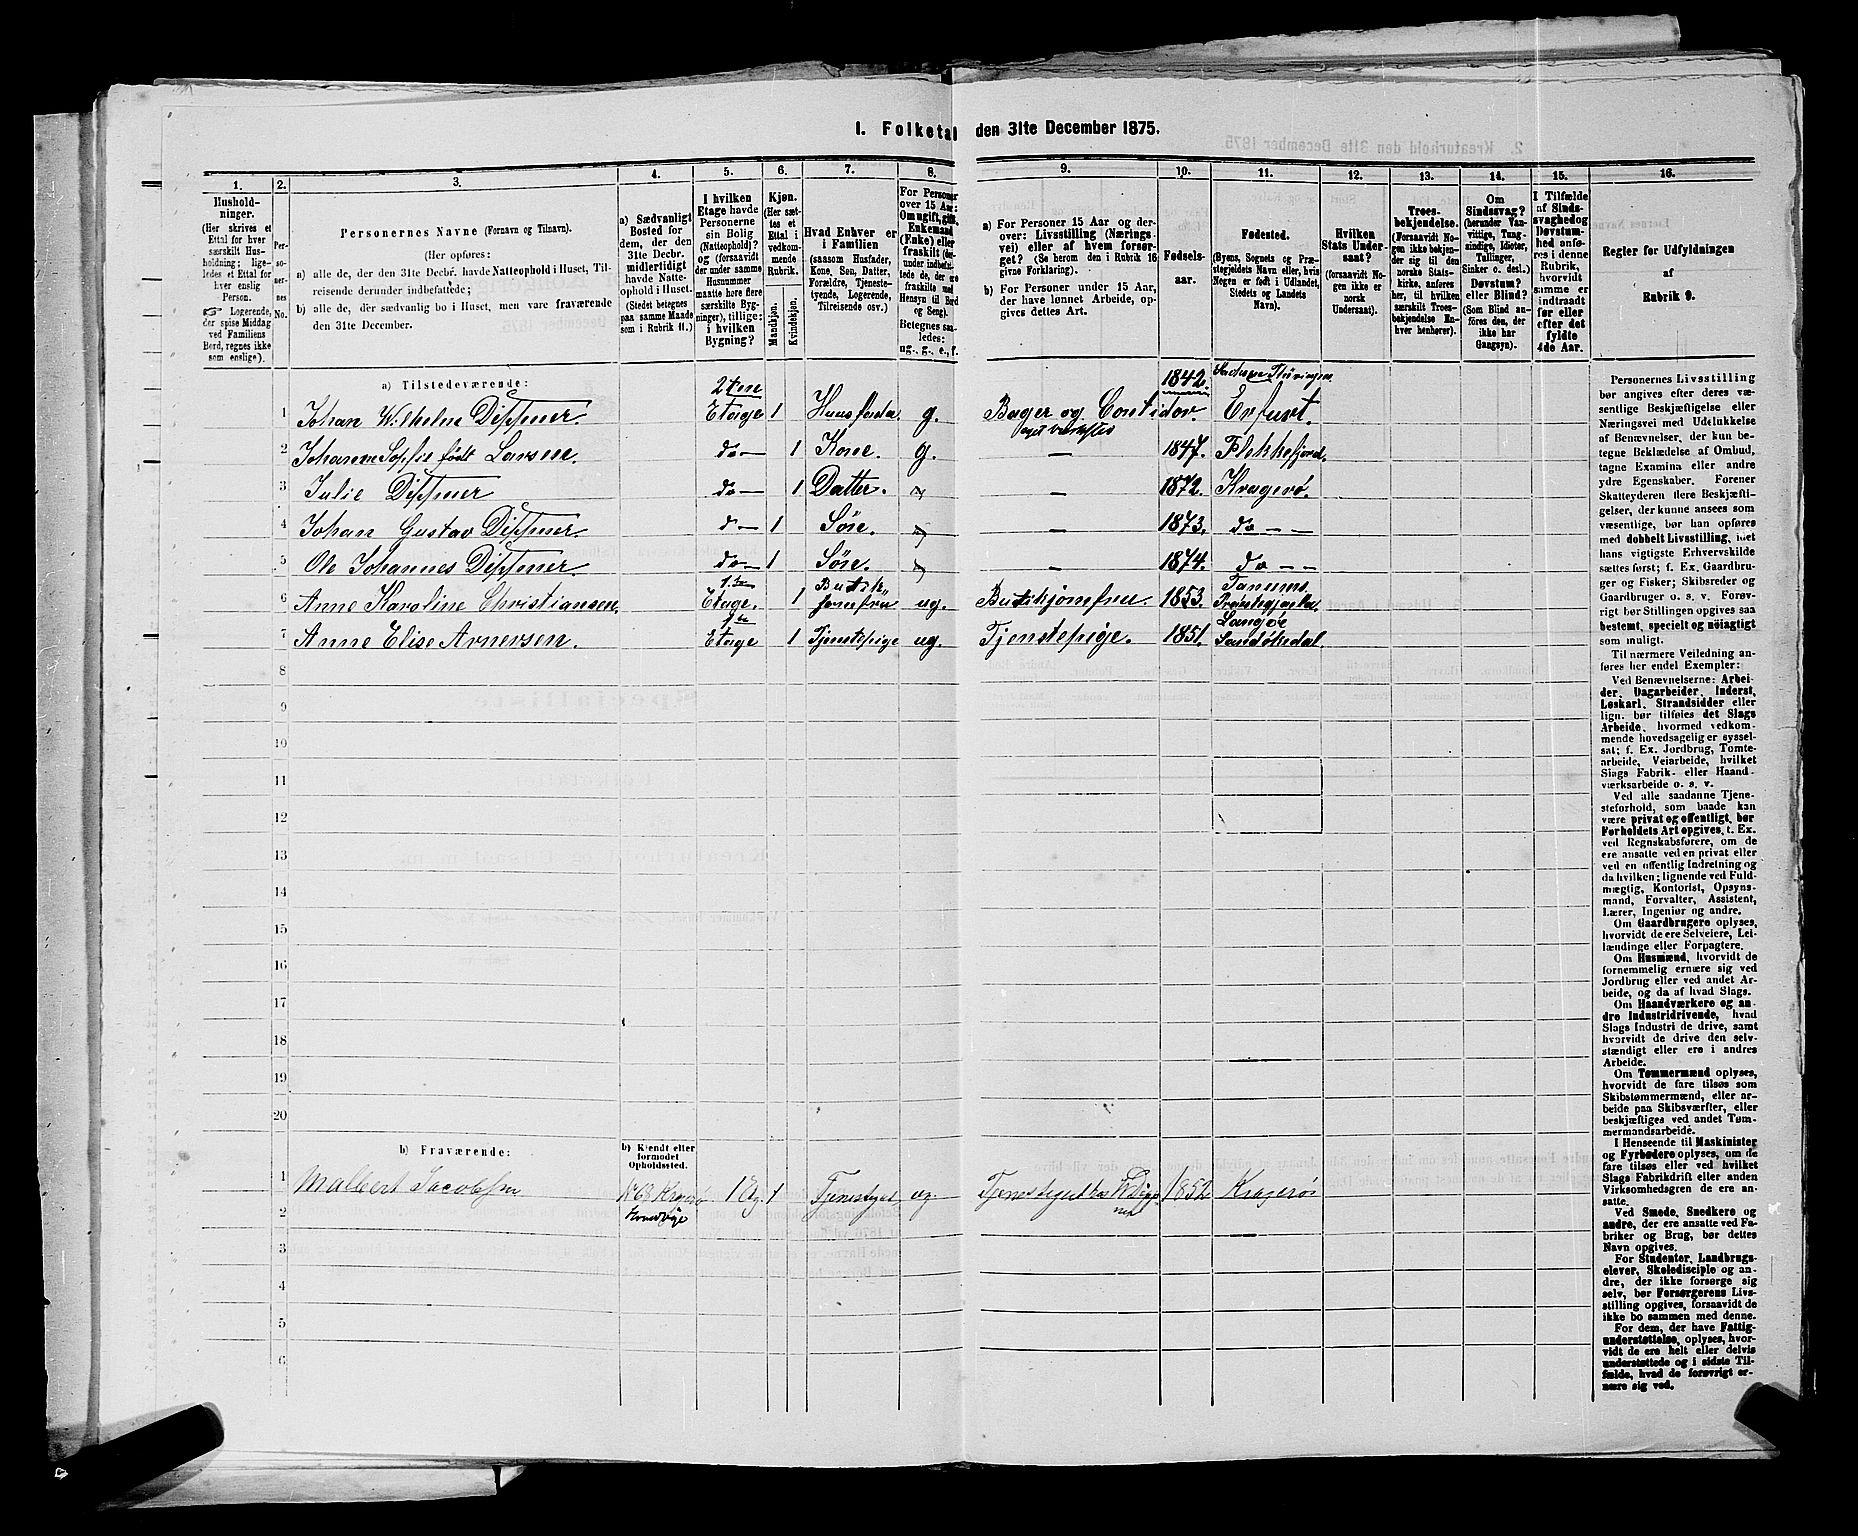 I. Folketal den 31te December 1875.
1. 2. 3. 4. 5. 6. 7. 8. 9. 10. 11. 12. 13. 14. 15. 16.
Husholdninger.
(Her skrives et
Ettal for hver
særskilt Husholdning;
ligeledes et Ettal for
hver enslig
Person.
Logerende,
der spise Middag
ved Familiens
Bord, regnes ikke
som enslige).
Personernes No.
Personernes Navne (Fornavn og Tilnavn).
(Her opføres:
a) alle de, der den 31te Decbr. havde Natteophold i Huset, Tilreisende derunder indbefattede;
b) alle de, der sædvanlig bo i Huset, men vare fraværende
den 31te December.
a) Sædvanligt
Bosted for
dem, der den
31te Decbr.
midlerlidigt
havde Natteophold i Huset.
(Stedet betegnes
paa samme Maade
som i Rubrik 11.)
I hvilken
Etage havde
Personerne
sin Bolig
(Natteophold)?
og (forsaavidt
der under samme
Husnummer
maatte høre flere
særskilte Bygninger), tillige:
i hvilken
Bygning?
Kjøn.
(Her sættes et
Ettal i
vedkommende
Rubrik.
Mandkjøn.
Kvindekjøn.
Hvad Enhver er
i Familien
(saasom Husfader,
Kone, Søn, Datter,
Forældre, Tjenestetyende, Logerende,
Tilreisende osv.)
For Personer
over 15 Aar:
Om ugift, gift,
Enkemand
(Enke) eller
fraskilt
Betegnes saaledes:
ug., g., e., f.
a) For Personer 15 Aar og derover: Livsstilling (Næringsvei) eller af hvem forsørget? (Se herom den i Rubrik 16
givne Forklaring).
b) For Personer under 15 Aar,
der have lønnet Arbeide, opgives dettes Art.
Fødselsaar.
Fødested.
(Byens, Sognets og Præstegjeldets Navn eller, hvis
Nogen er født i Udlandet,
Stedets og Landets
Navn).
Hvilken
Stats Undersaat?
(forsaavidt Nogen ikke er
norsk
Undersaat).
Troesbekjendelse.
(Forsaavidt Nogen ikke bekjender sig til den
norske Statskirke, anføres
her, til hvilken
særskilt Troesbekjendelse Enhver henhører).
Om
Sindssvag?
(herunder Vanvittige, Tungsindige, Idioter,
Tullinger,
Sinker o. desl.)
Døvstum?
eller Blind?
(Som Blind anføres den, der
ikke har
Gangsyn).
I Tilfælde
af Sindssvaghed og
Døvstumhed anføres i denne
Rubrik,
hvorvidt
samme er
indtraadt
før eller
efter det
fyldte
4de Aar.
Regler før Udfyldningen
af
Rubrik 9.
a) Tilstedeværende:
1 Johan Wilhelm Dippner. 2den Etage 1 Huusfader. g. Bager og Conditor 1842. Erfurt.
2 Johanne Sofie født Larsen. do — 1 Kone. g. — 1847. Flekkefjord.
3 Julie Dippner do — 1 Datter. — 1872. Kragerø.
4 Johan Gustav Dippner. do — 1 Søn. — 1873. do — —
5 Ole Johannes Dippner. do — 1 Søn. — 1874. do — —
6 Anne Karoline Christiansen. 1ste Etage. 1 Butikjomfru ug. Butikjomfru. 1853. Tanums
7 Anne Elise Arnersen. 1ste Etage 1 Tjenestepige ug. Tjenestepige. 1851. Langøe Sandøkedal.
8
9
10
11
12
13
14
15
16
17
18
19
20
b) Fraværende:
b) Kjendt eller
formodet
Opholdssted.
1 Malbert Jacobsen No 68 Kragerø 1 Etg. 1 Tjenestegut ug. Tjenestegut hos Dippner 1852 Kragerøi
2
3
4
5
6
Personernes Livsstilling
bør angives efter deres væsentlige Beskjæftigelse eller
Næringsvei med Udelukkelse
af Benævnelser, der kun betegne Beklædelse af Ombud,
tagne Examina eller andre
ydre Egenskaber. Forener
Skatteyderen flere Beskjæftigelser, der kunne ansees som
væsentlige, bør han opføres
med dobbelt Livsstilling, idet
hans vigtigste Erhvervskilde
sættes først; f. Ex. Gaardbruger og Fisker; Skibsreder og
Gaardbruger o. s. v. Forøvrigt bør Stillingen opgives saa
bestemt, specielt og nøiagtigt
som muligt.
Til nærmere Veiledning anføres her endel Exempler:
Ved Benævnelserne: Arbeider, Dagarbeider, Inderst,
Løskarl, Strandsidder eller
lign. bør tilføies det Slags
Arbeide, hvormed vedkommende hovedsagelig er sysselsat; f. Ex. Jordbrug, Tomtearbeide, Veiarbeide, hvilket
Slags Fabrik- eller Haandværksarbeide o. s. v.
Ved alle saadanne Tjenesteforhold, som baade kan
være privat og offentligt, bør
Forholdets Art opgives, t. Ex.
ved Regnskabsførere, om de
ere ansatte ved en privat eller
ved en offentlig Indretning og
da hvilken; lignende ved Fuldmægtig, Kontorist, Opsynsmand, Forvalter, Assistent,
Lærer, Ingeniør og andre.
Om Gaardbrugere oplyses,
hvorvidt de ere Selveiere, Leilændinge eller Forpagtere.
Om Husmænd, hvorvidt de
fornemmelig ernære sig ved
Jordbrug eller ved andet Arbeide, og da af hvad Slags.
Om Haandværkere og andre Industridrivende, hvad
Slags Industri de drive, samt
hvorvidt de drive den selvstændigt eller ere i andres
Arbeide.
Om Tømmermænd oplyses,
hvorvidt de fare tilsøs som
Skibstømmermænd, eller arbeide paa Skibsværfter, eller
beskjæftiges ved andet Tømmermandsarbeide.
I Henseende til Maskinister
og Fyrbødere oplyses, om de
fare tilsøs eller ved hvilket
Slags Fabrikdrift eller anden
Virksomhedsgren de ere ansatte.
Ved Smede, Snedkere og
andre, der ere ansatte ved Fabriker og Brug, bør dettes
Navn opgives.
For Studenter, Landbrugselever, Skoledisciple og andre, der ikke forsørge sig
selv, bør Forsørgerens Livsstilling opgives, forsaavidt de
ikke bo sammen med denne.
For dem, der have Fattigunderstøttelse, oplyses, hvorvidt de ere helt eller delvis
understøttede og i sidste Tilfælde, hvad de forøvrigt ernære sig ved.